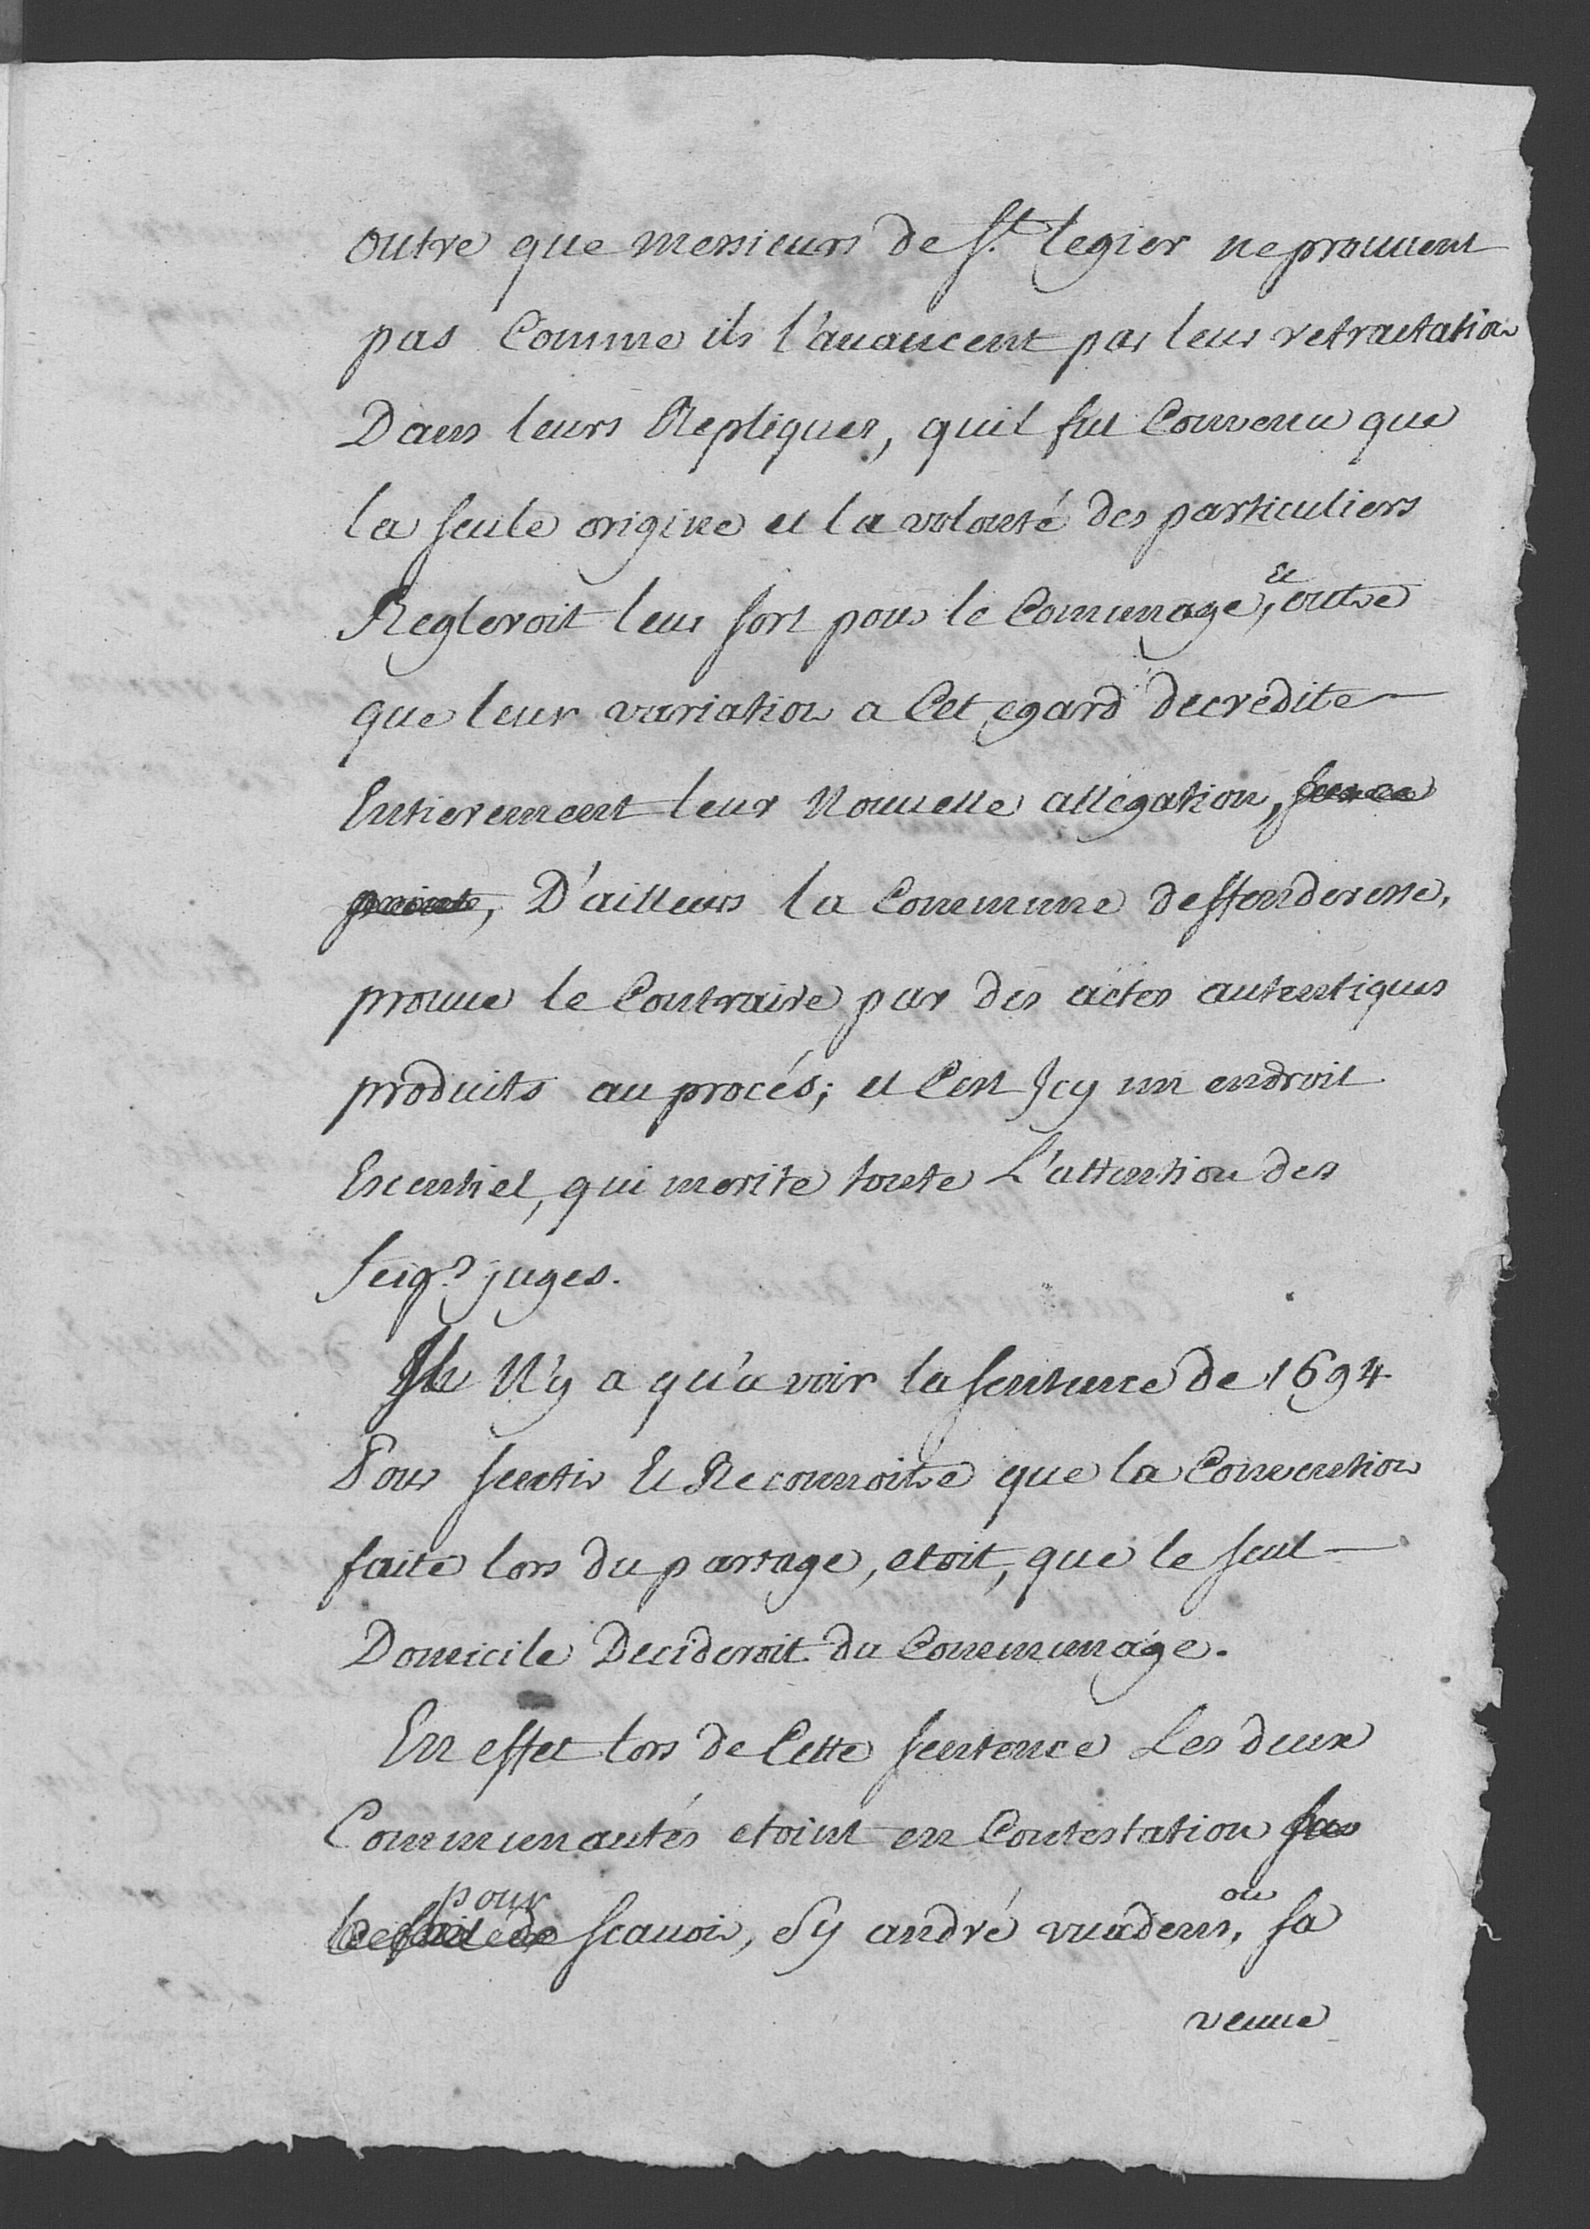 outre que messieurs de St. legier ne prouvent
pas Comme ils l'avancent par leur retractation
Dans leurs Repliques, quil fut Convenu que
la seule origine et la volonté des particuliers
Regleroit leur sort pour le Comunage, et outre
que leur variation a Cet egard decredite
Entierement leur Nouvelle allégation, sur ce
point, D'ailleurs la Commune deffenderesse,
prouve le Contraire par des actes autentiques
produits au procés; et C'est Jcy un endroit
Escentiel, qui merite toute L'attention des
seigrs juges.
Il N'y a qu'a voir la sentence de 1694
Pour sentir Et Reconnoitre que la Convention
faite lors du partage, etoit, que le seul
Domicile Decideroit du Communage.
En effet lors de Cette sentence Les deux
Communautés etoint en Contestation sur
le fait de pour scavoir, Sy andré vuadens, ou sa
veuve